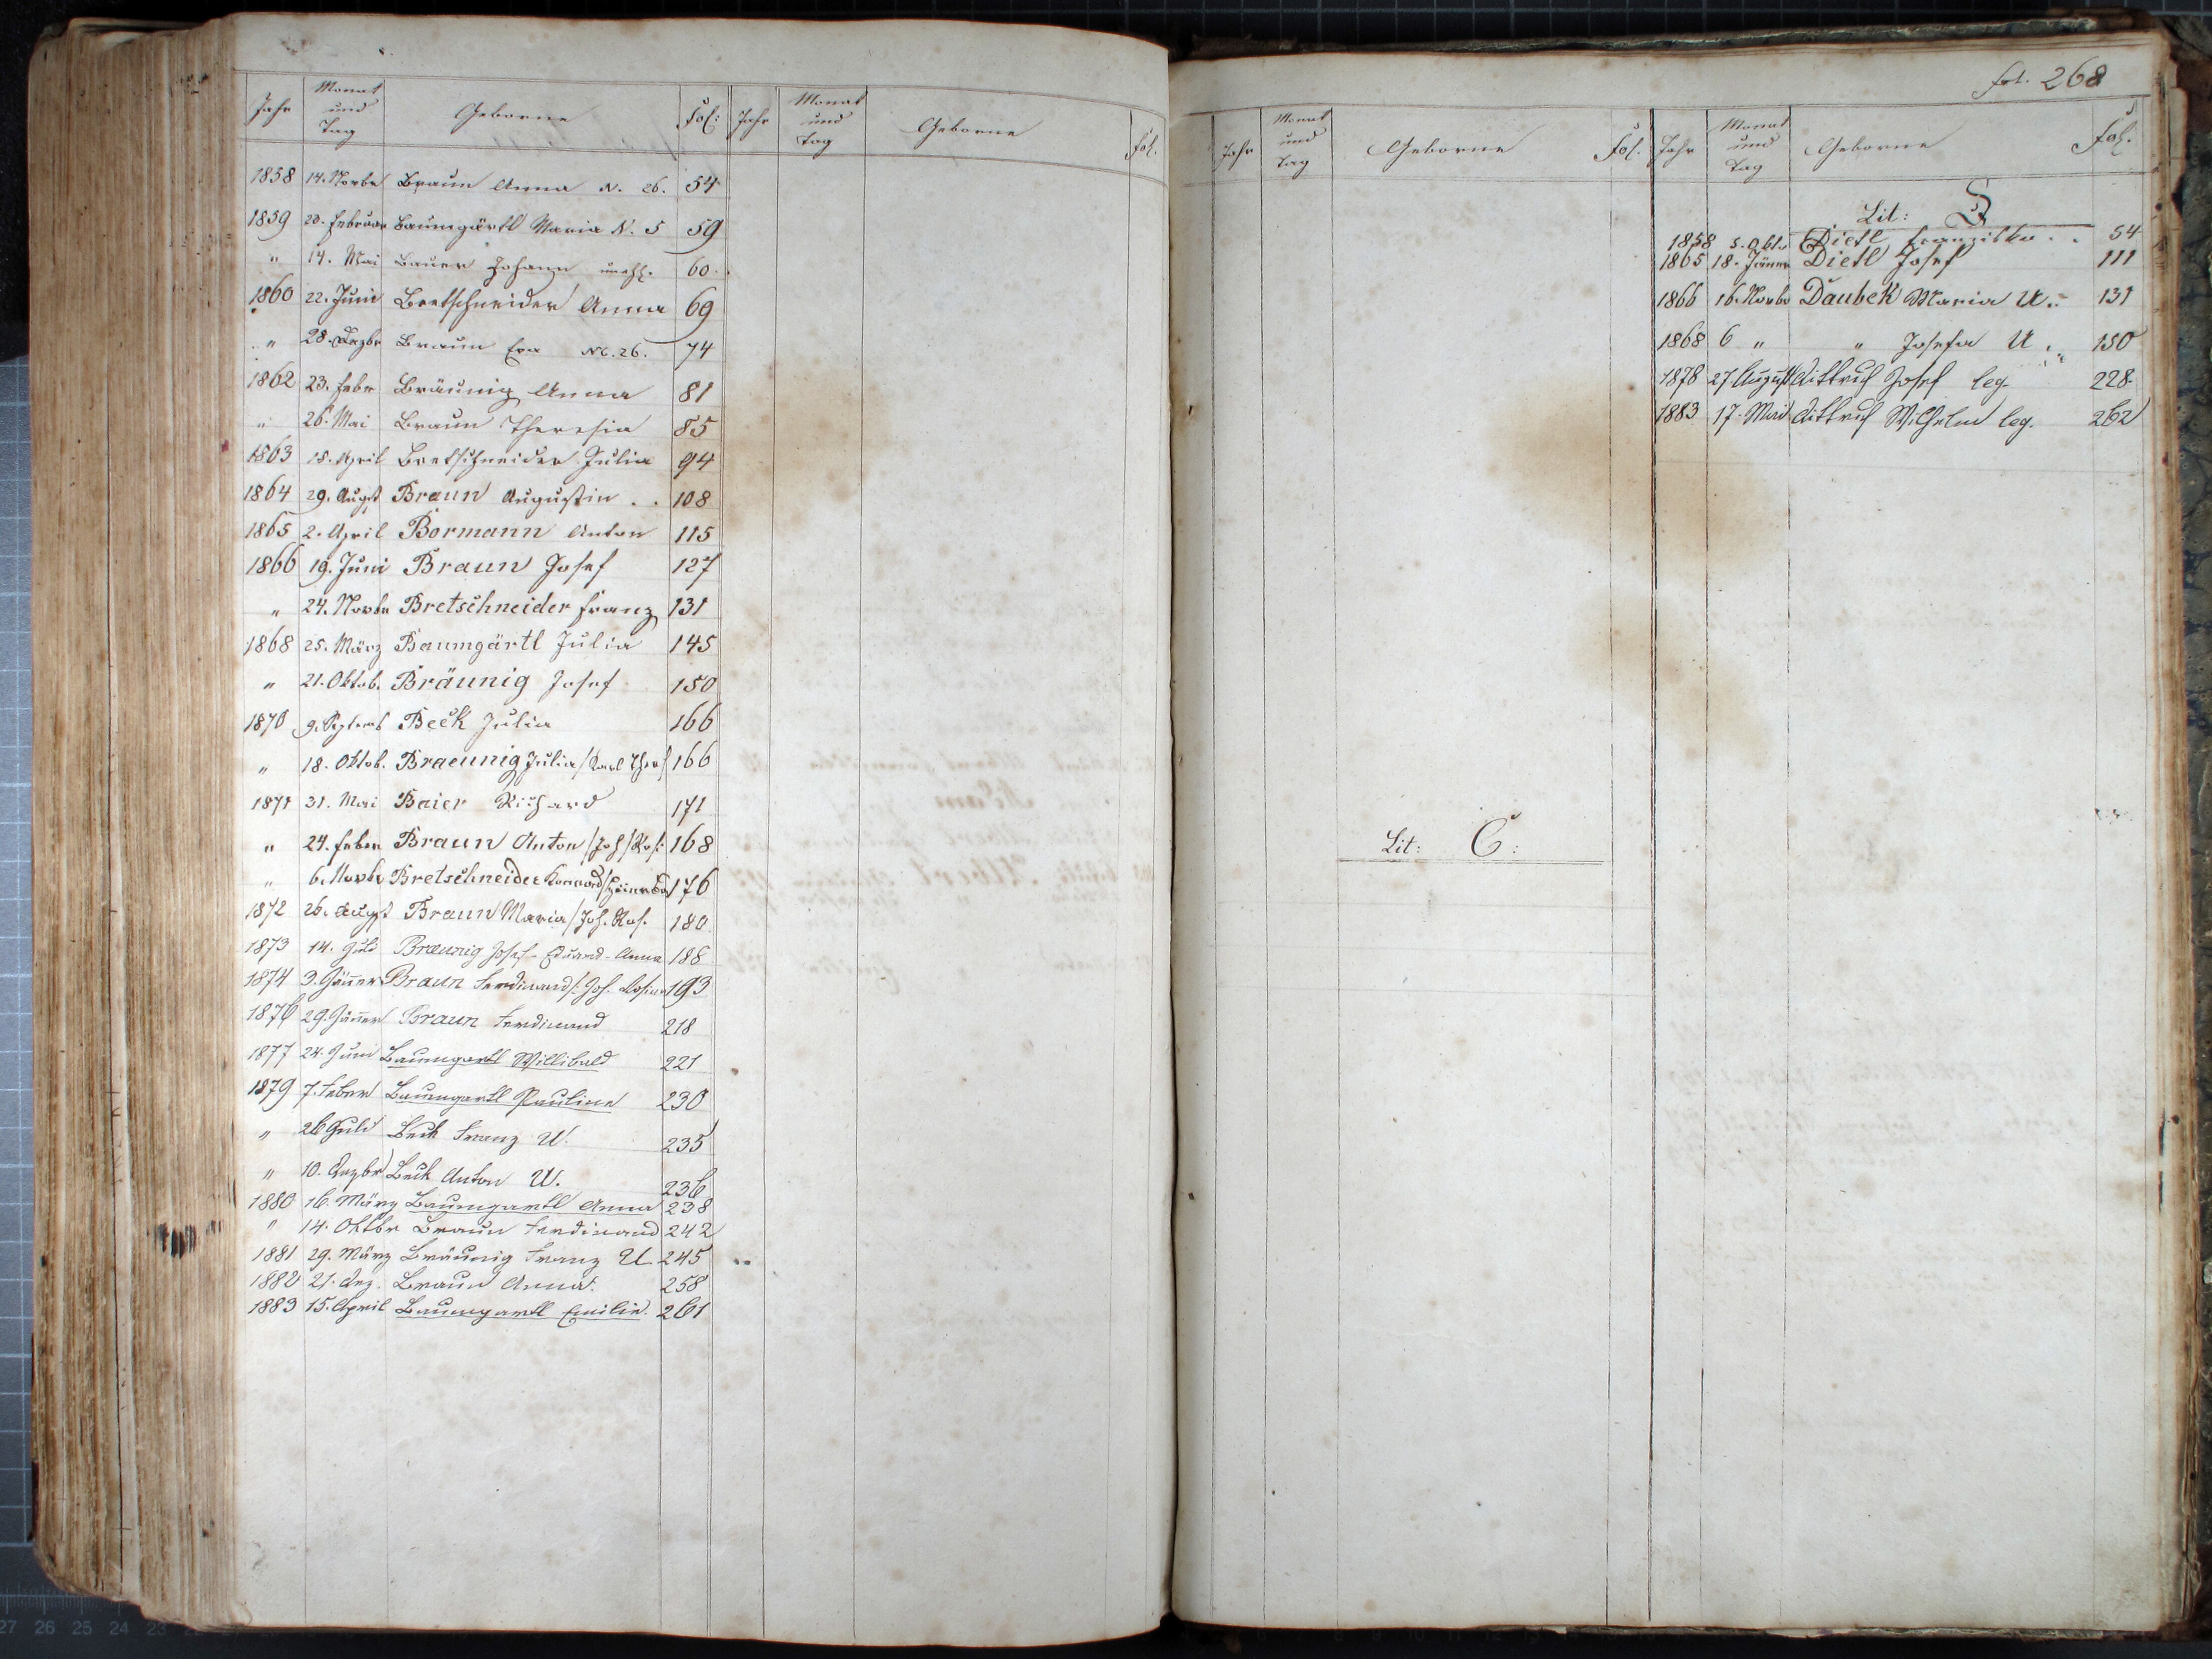 Jahr Monat und Tag Geborne Fol: Jahr Monat und Tag Geborne Fol.
1858 14. Novbr Braun Anna N. 26. 54
1859 20. Februar Baumgärtl Maria N. 5 59
" 14. Mai Bauer Johann unehl. 60.
1860 22. Juni Bretschneider Anna 69
" 28. Dezbr Braun Eva Nc. 26. 74
1862 23. Febr Bräunig Anna 81
" 26. Mai Braun Theresia 85
1863 18. April Bretschneider Julia 94
1864 29. Augst Braun Augustin . . 108
1865 2. April Bormann Anton 115
1866 19. Juni Braun Josef 127
" 24. Novbr Bretschneider Franz 131
1868 25. März Baumgärtl Julia 145
" 21. Oktob. Bräunig Josef 150
1870 9. Septemb Beck Julia 166
" 18. Oktob. Braeunig Julia /Karl Ther/ 166
1871 31. Mai Baier Richard 171
" 24. Feber Braun Anton /Joh/Ros: 168
" 6. Novbr Bretschneider Konrad 176
1872 26. Augst Braun Maria /Joh. Ros. 180
1873 14. Juli Braeunig Josef - Eduard - Anna 188
1874 3. Jänner Braun Ferdinand /: Joh. Rosina 193
1876 29. Jänner Braun Ferdinand 218
1877 24. Juni Baumgartl Willibald 221
1879 7. Feber Baumgartl Pauline 230
" 26 Juli Beck Franz U. 235
" 10. Dezbr Beck Anton U. 236
1880 16. März Baumgartl Anna 238
" 14. Oktbr Braun Ferdinand 242
1881 29. März Bräunig Franz U 245
1882 21. Dez. Braun Anna. 258
1883 15. April Baumgartl Emilie. 261
fol. 268
Jahr Monat und Tag Geborne Fol. Jahr Monat und Tag Geborne Fol.
Lit: C:
Lit: D
1858 5. Okt. Dietl Franziska . . 54
1865 18. Jänner Dietl Josef 111
1866 16. Novbr Daubek Maria U. 131
1868 6 " " Josefa U. 150
1878 27. August Dittrich Josef leg. 228.
1883 17. Mai Dittrich Wilhelm leg. 262